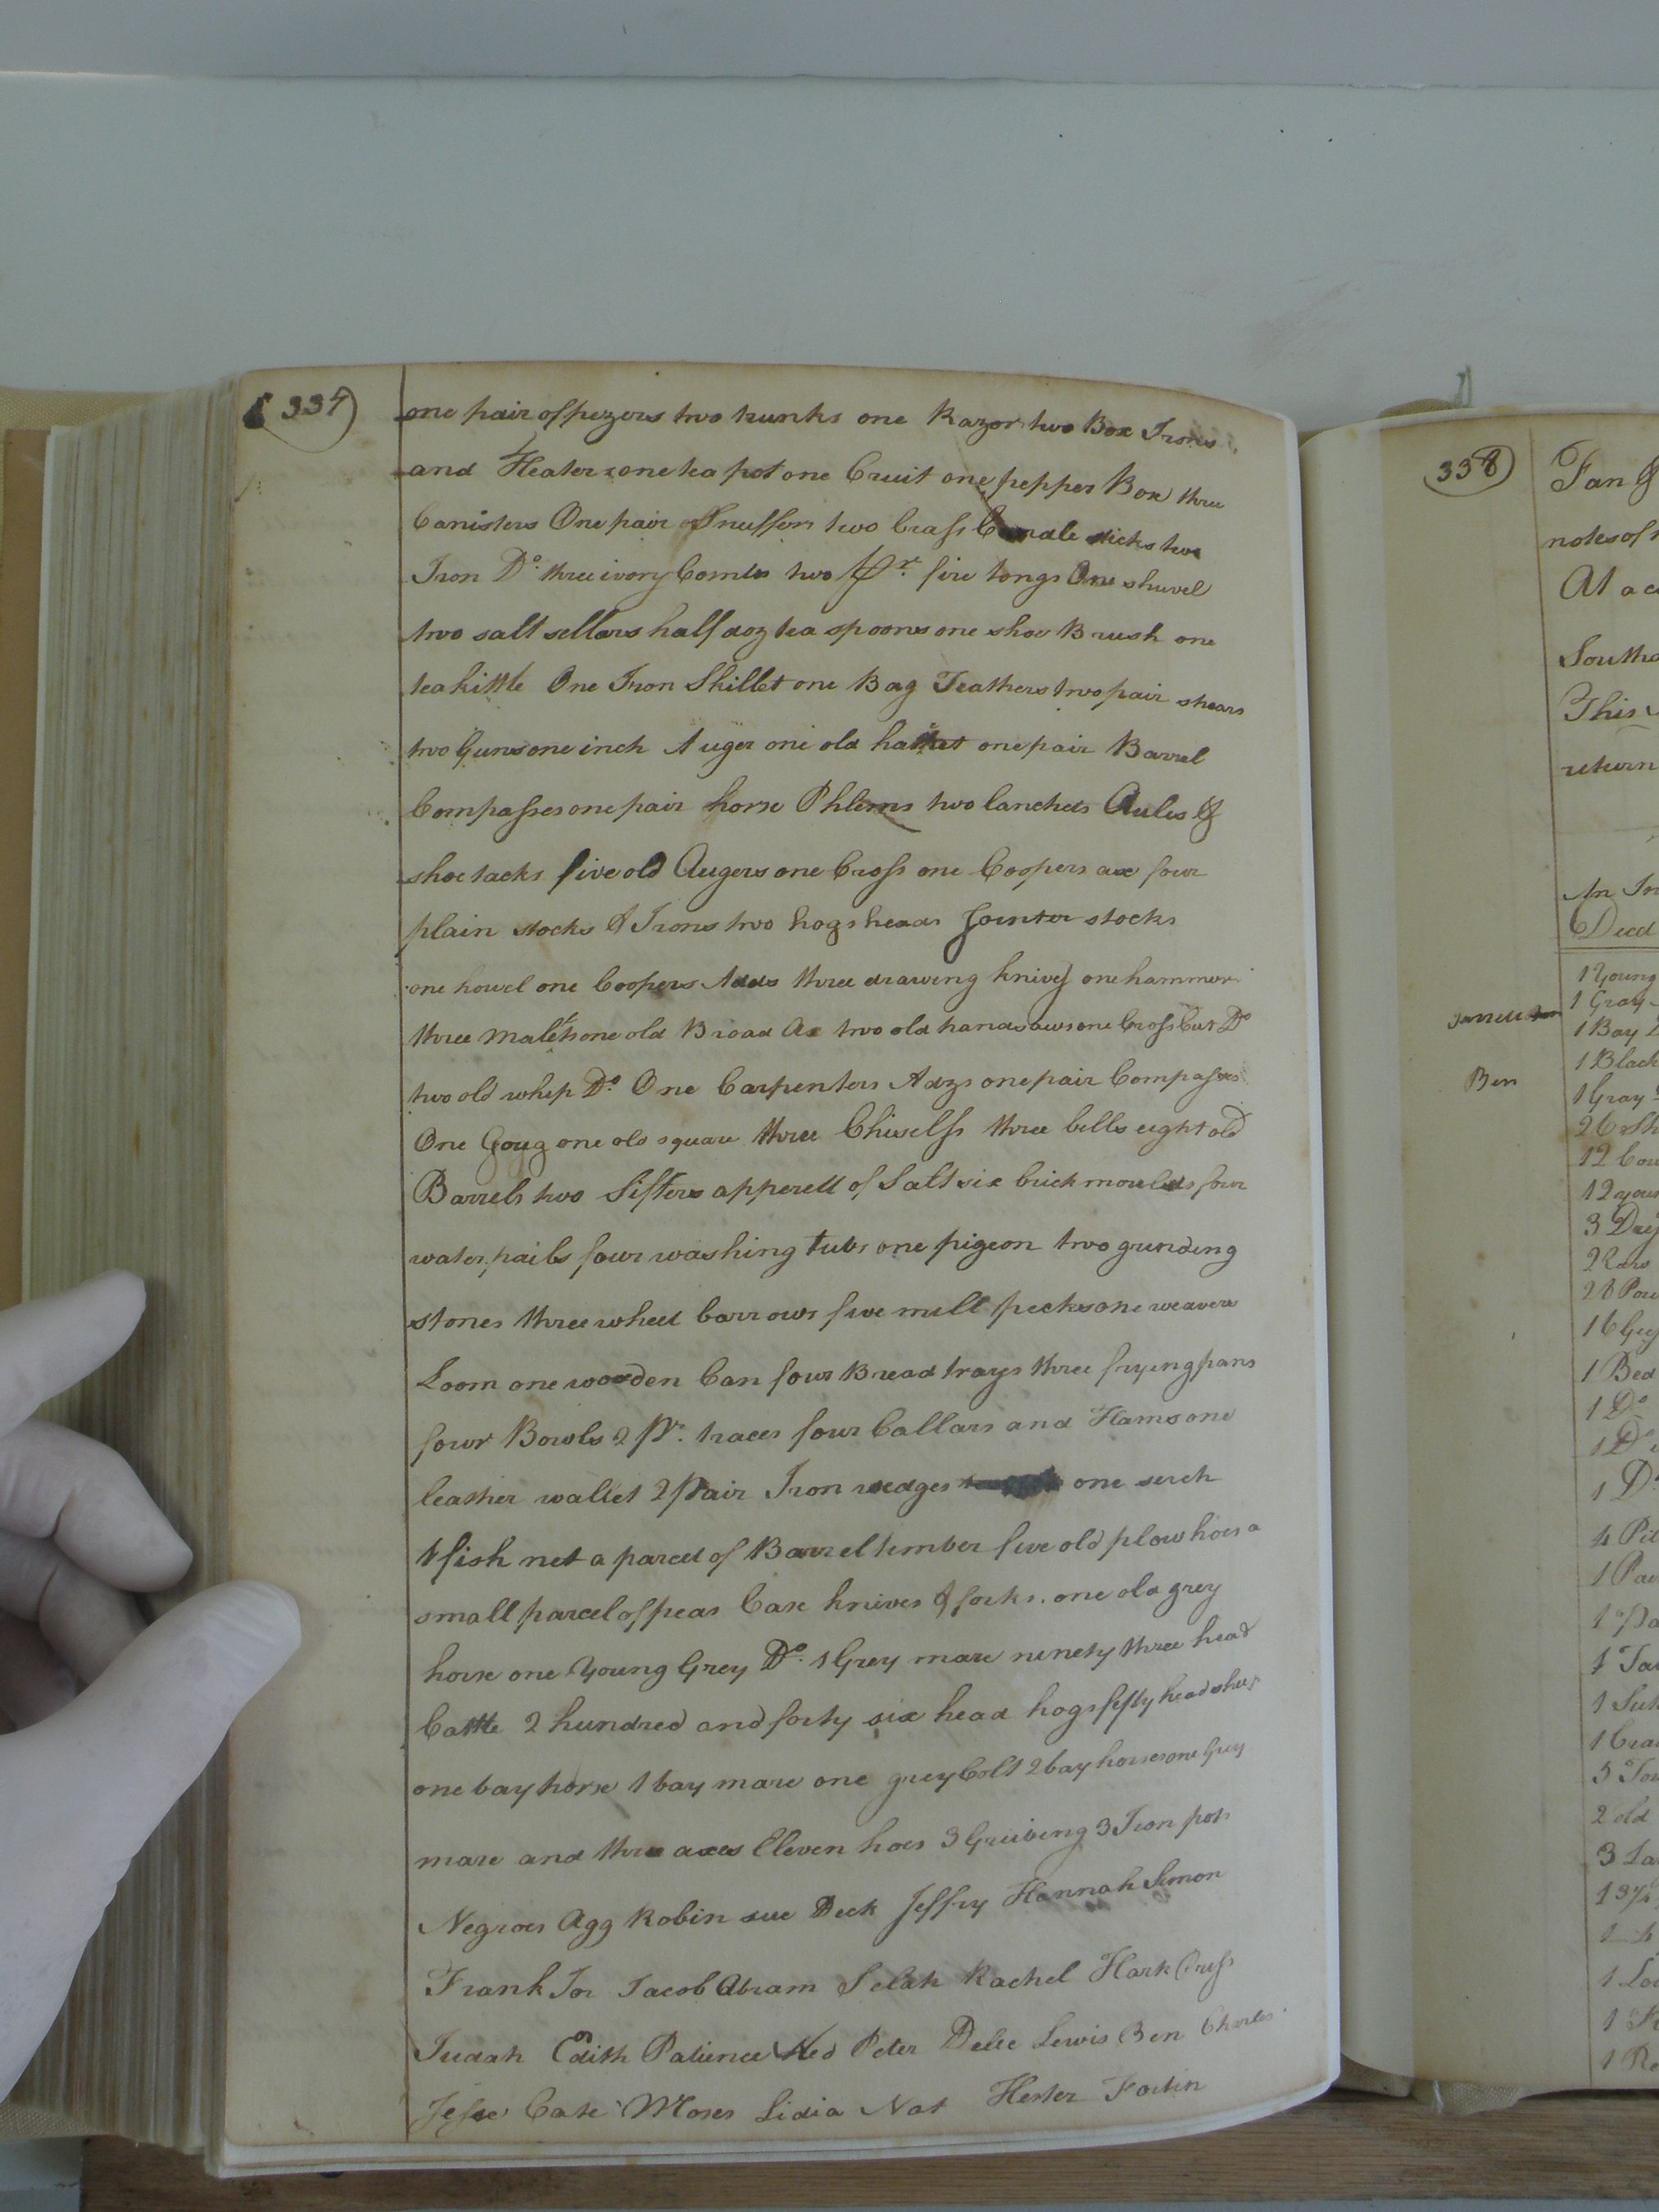 334
one pair of pezers two trunks one Razor two Box Irons
and Heater one tea pot one Cruit one pepper Box three
Canisters One pair Snuffers two brass Candle sticks two
Iron Do. three ivory Combs two Pr. fire tongs One shuvel
two salt sellars half doz tea spoons one shoe Brush one
tea kittle One Iron Skillet one Bag Feathers two pair shears
two Guns one inch Auger one old one pair Barrel
Compasses one pair horse Phlems two lanchets Aules &
shoe tacks five old Augers one Cross one Coopers axe four
plain stocks & Irons two hogsheads Jointer stocks
one howel one Coopers Adds three drawing knives one hammer
three malets one old Broad Ax two old handsaws one Cross Cut Do
two old whip Do. One Carpenters Adzs one pair Compasses
One Goug one old square three Chiselss three bells eight old
Barrels two Sifters apperell of Salt six brick moulds four
water pails four washing tubs one pigeon two grunding
stones three wheel barrows five mill pecks one weavers
Loom one wooden Can four Bread trays three frying pans
four Bowls 2 Pr. traces four Callars and Hams one
leather wallet 2 Pair Iron wedges one serch
1 fish net a parcel of Barrel timber five old plow hoes a
small parcel of peas Case knives & forks. one old grey
horse one Young Grey Do. 1 Grey mare ninety three head
Cattle 2 hundred and forty six head hogs fifty head sheep
one bay horse 1 bay mare one grey Colt 2 bay horses one Grey
mare and three axes Eleven hoes 3 Gruibing 3 Iron pots
Negroes Agg Robin sue Deck Jeffry Hannah Simon
Frank Jacob Abram Selah Rachel Hark
Judah Edith Patience Ned Peter Lewis Ben Charles
Jesse Cate Moses Lidia Nat Hester
338
Fan &
notes of
At a
South
This
return
An In
Decd
1 Young
1 Gray
1 Bay
1 Black
Ben
1 Gray
12 Cow
12 your
3
2
1 Bed
1 Do
1 Do
1
4
1
1
1
1
1
5
2 old
3
1
1
1